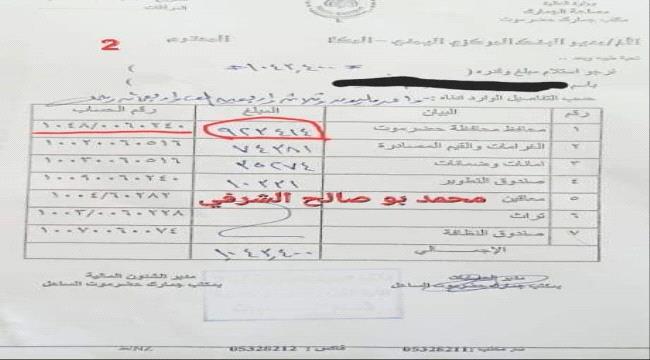 وزارة المالية
مصلحة الجمارك
مكتب جمارك حضرموت
2
الأخ/مدير البنك المركزي اليمني - المكلا المحترم
تحية طيبة وبعد
نرجو استلام مبلغ وقدره ( ١٠٤٣,٤٠٠ )
باسم
حسب التفاصيل الوارد ادناه :-
رقم البيان المبلغ رقم الحساب
١ محافظ محافظة حضرموت ٩٢٣٤١٤ ١٠٤٨/٠٠٦٠٢٤٠
٢ الغرامات والقيم المصادرة ٧٤٣٨١ ١٠٠٢٠٠٦٠٥١٦
٣ امانات وضمانات ٣٥٢٧٤ ١٠٠٣٠٠٦٠٥١٦
٤ صندوق التطوير ١٠٣٣١ ١٠٠٩٠٠٦٠٢٤٠
٥ معاقين ١٠٠٤/٦٠٢٨٢
محمد بو صالح الشرفي
٦ تراث ١٠٠٣/٠٠٦٠٢٢٨
٧ صندوق النظافة ١٠٠٢٠٠٦٠٠٧٤
الإجمالي ١٠٤٣,٤٠٠
مدير الشئون المالية
بمكتب جمارك حضرموت الساحل
بمكتب جمارك حضرموت الساحل
05328211 فاكس : 05328212